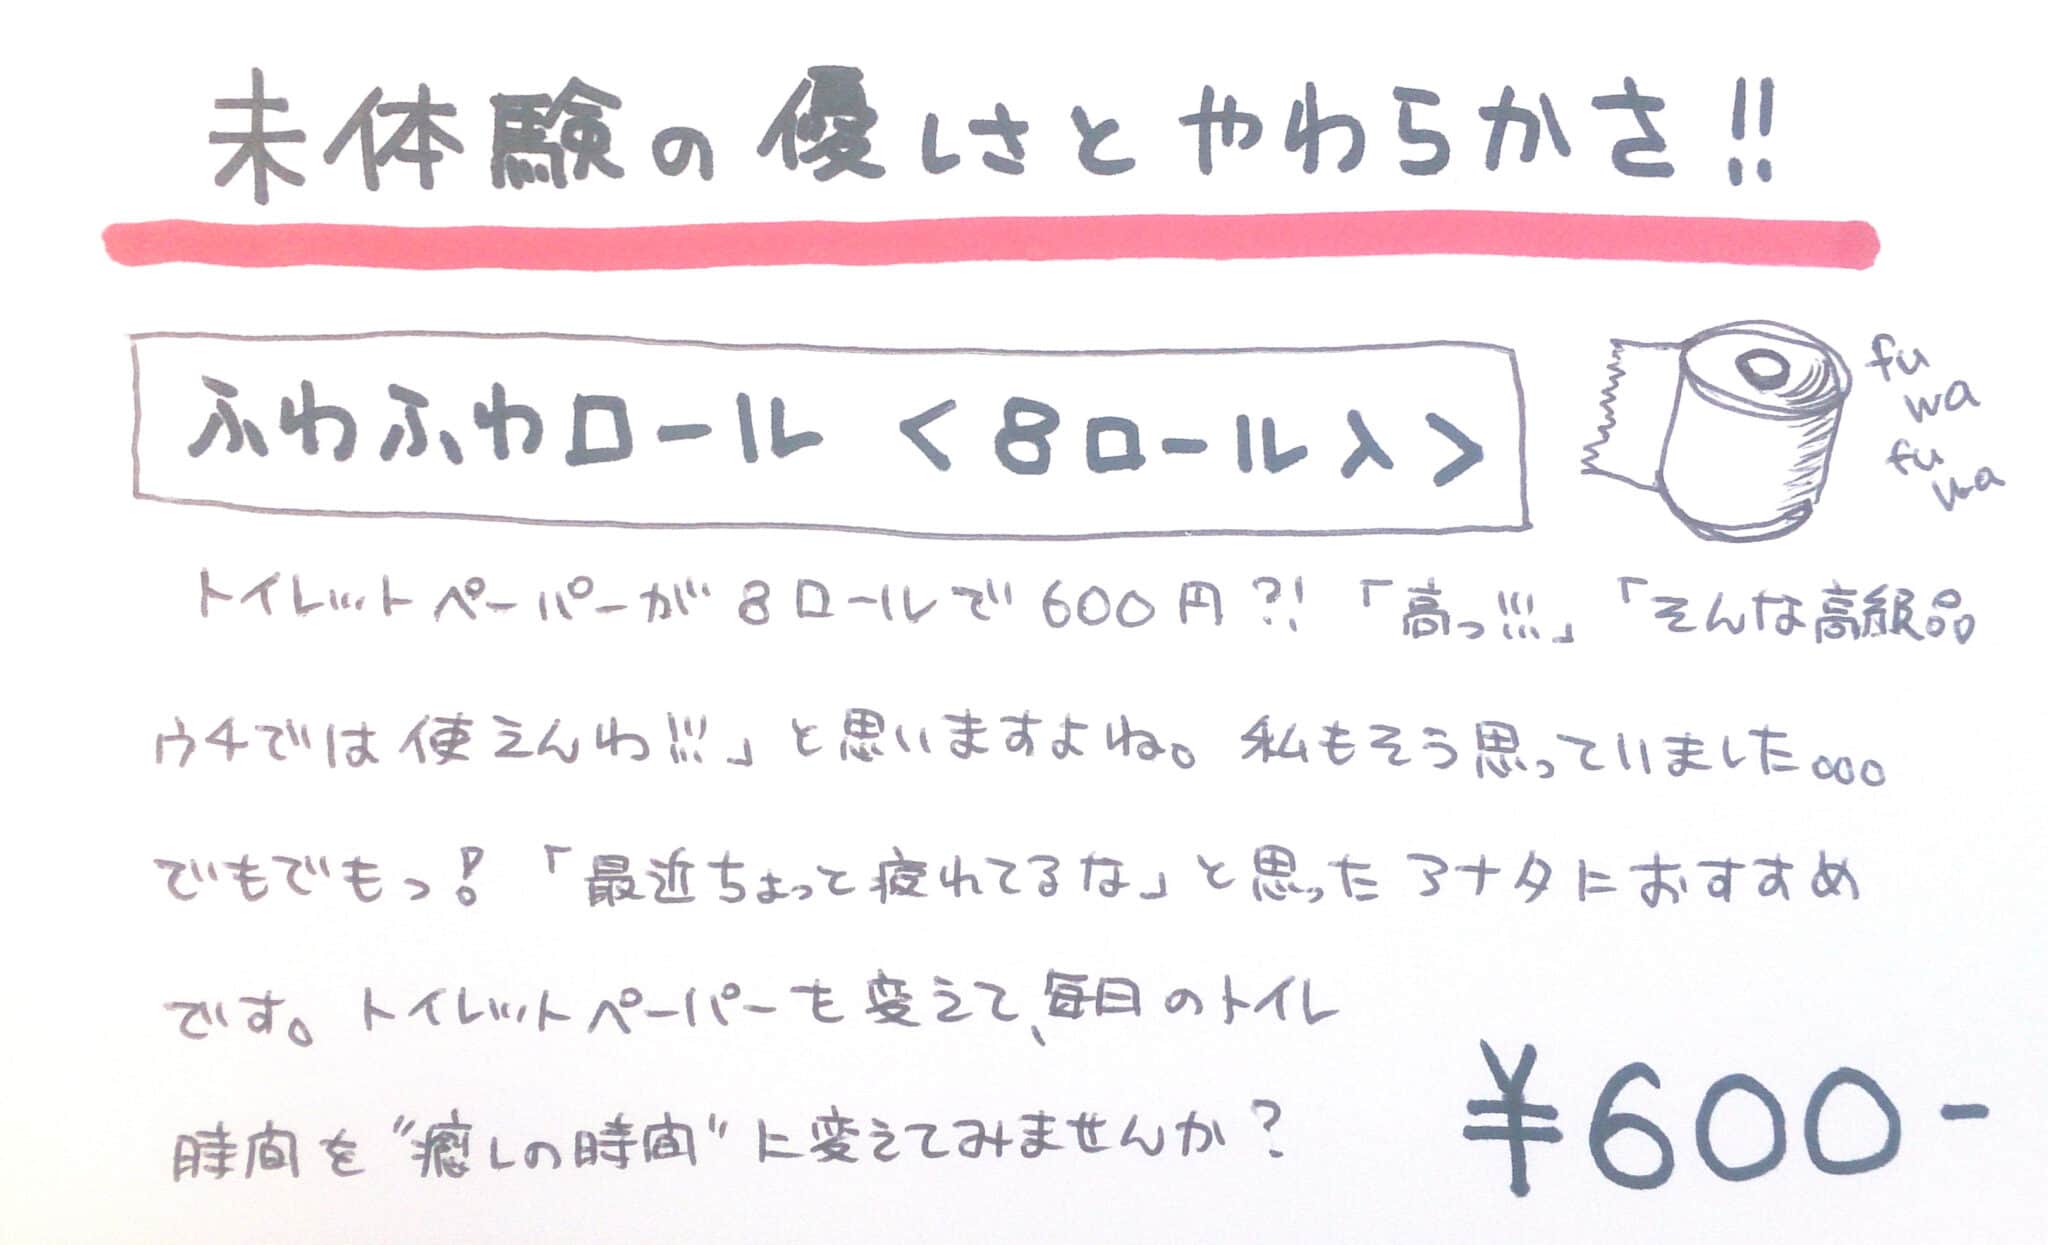 未体験の優しさとやわらかさ!!
ふわふわロール <8ロール入>
fu
wa
fu
wa
トイレットペーパーが8ロールで600円?!「高っ!!!」「そんな高級品
ウチでは使えんわ!!!」と思いますよね。私もそう思っていました。。。
でもでもっ!「最近ちょっと疲れてるな」と思ったアナタにおすすめ
です。トイレットペーパーも変えて、毎日のトイレ
時間を"癒しの時間"に変えてみませんか?
¥600-